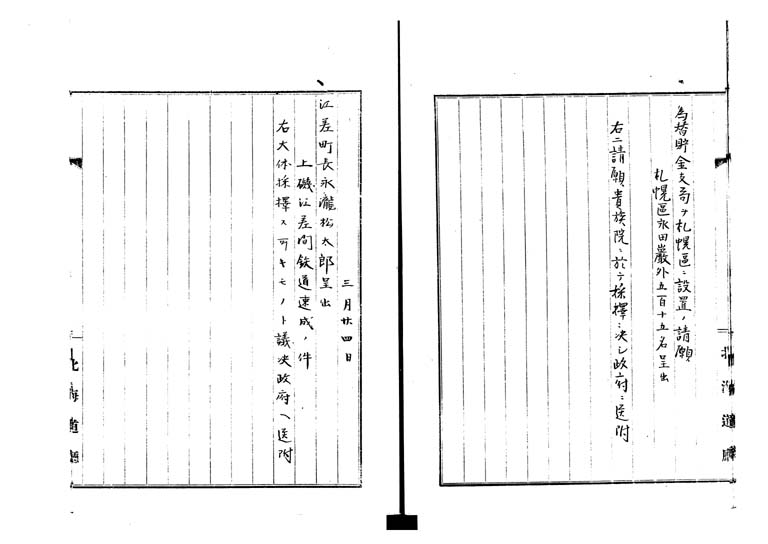 為替貯金支局ヲ札幌區ニ設置ノ請願
札幌區永田巖外五百十五名呈出
右二請願貴族院ニ於テ採擇ニ決シ政府ニ送附
北海道廳
三月廿四日
江差町長永瀧松太郎呈出
上磯江差間鉄道速成ノ件
右大体採擇スヘキモノト議決政府ヘ送附
北海道廳